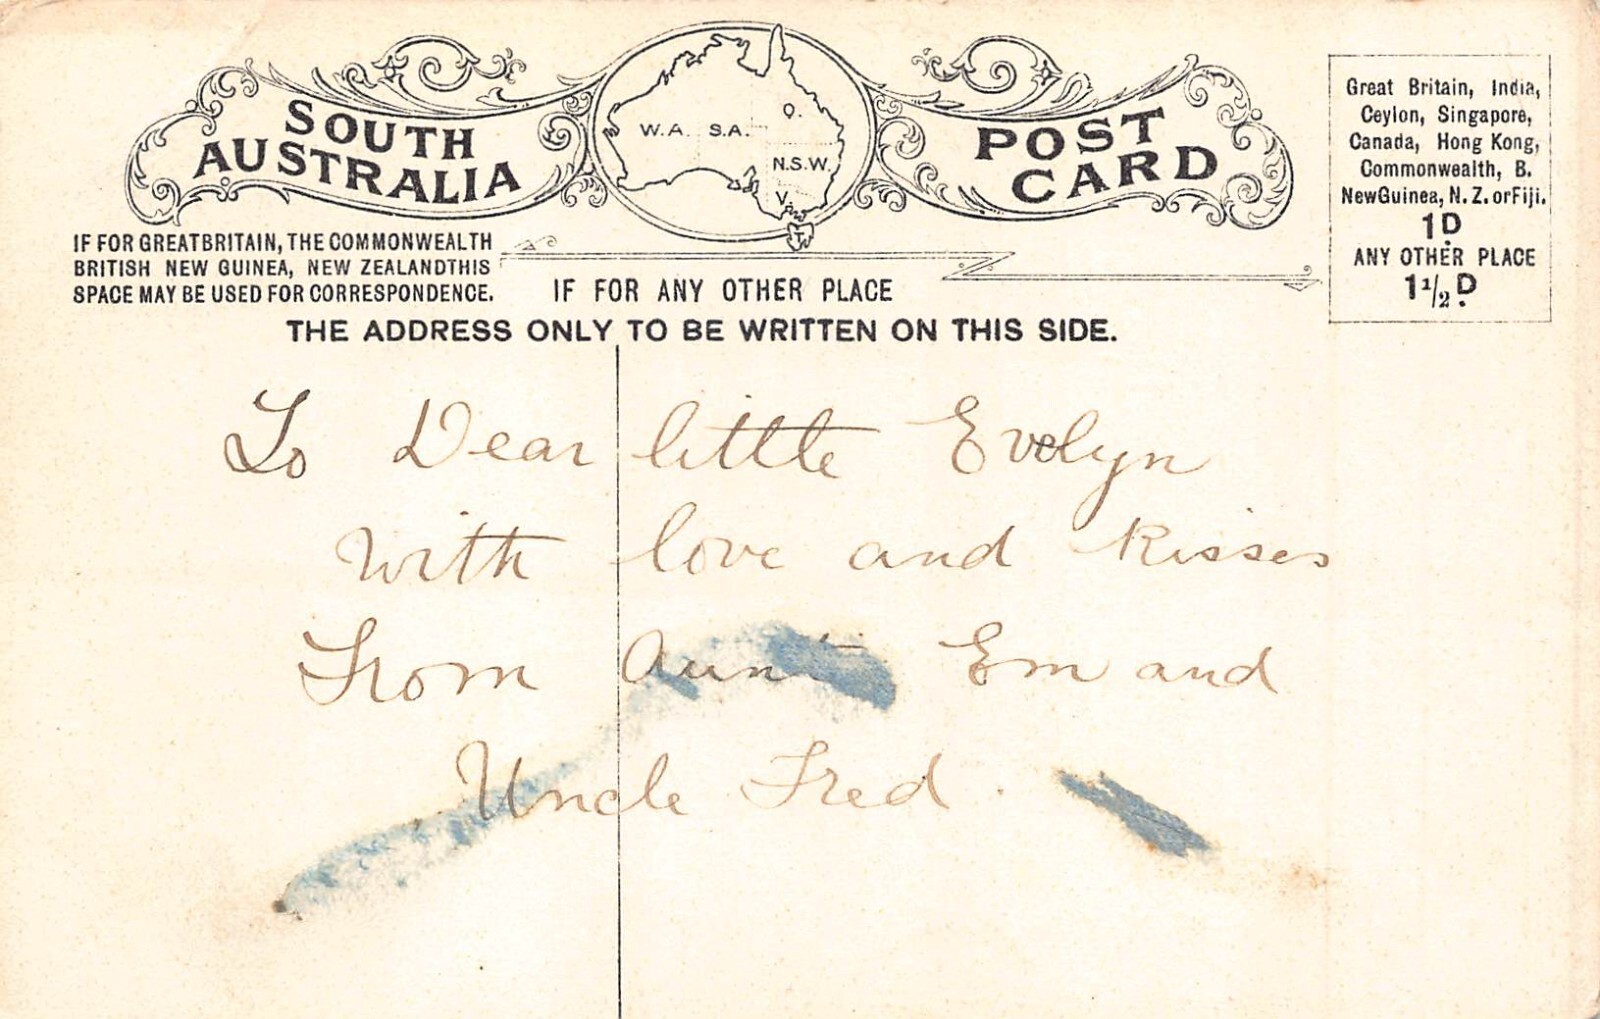 SOUTH
AUSTRALIA
W.A. S.A. Q.
N.S.W.
V.
T.
POST
CARD
Great Britain, India,
Ceylon, Singapore,
Canada, Hong Kong,
Commonwealth, B.
NewGuinea, N.Z. orFiji.
1D.
ANY OTHER PLACE
1½D.
IF FOR GREATBRITAIN, THE COMMONWEALTH
BRITISH NEW GUINEA, NEW ZEALANDTHIS
SPACE MAY BE USED FOR CORRESPONDENCE.
IF FOR ANY OTHER PLACE
THE ADDRESS ONLY TO BE WRITTEN ON THIS SIDE.
To Dear little Evelyn
with love and Kisses
From Aunt Em and
Uncle Fred.